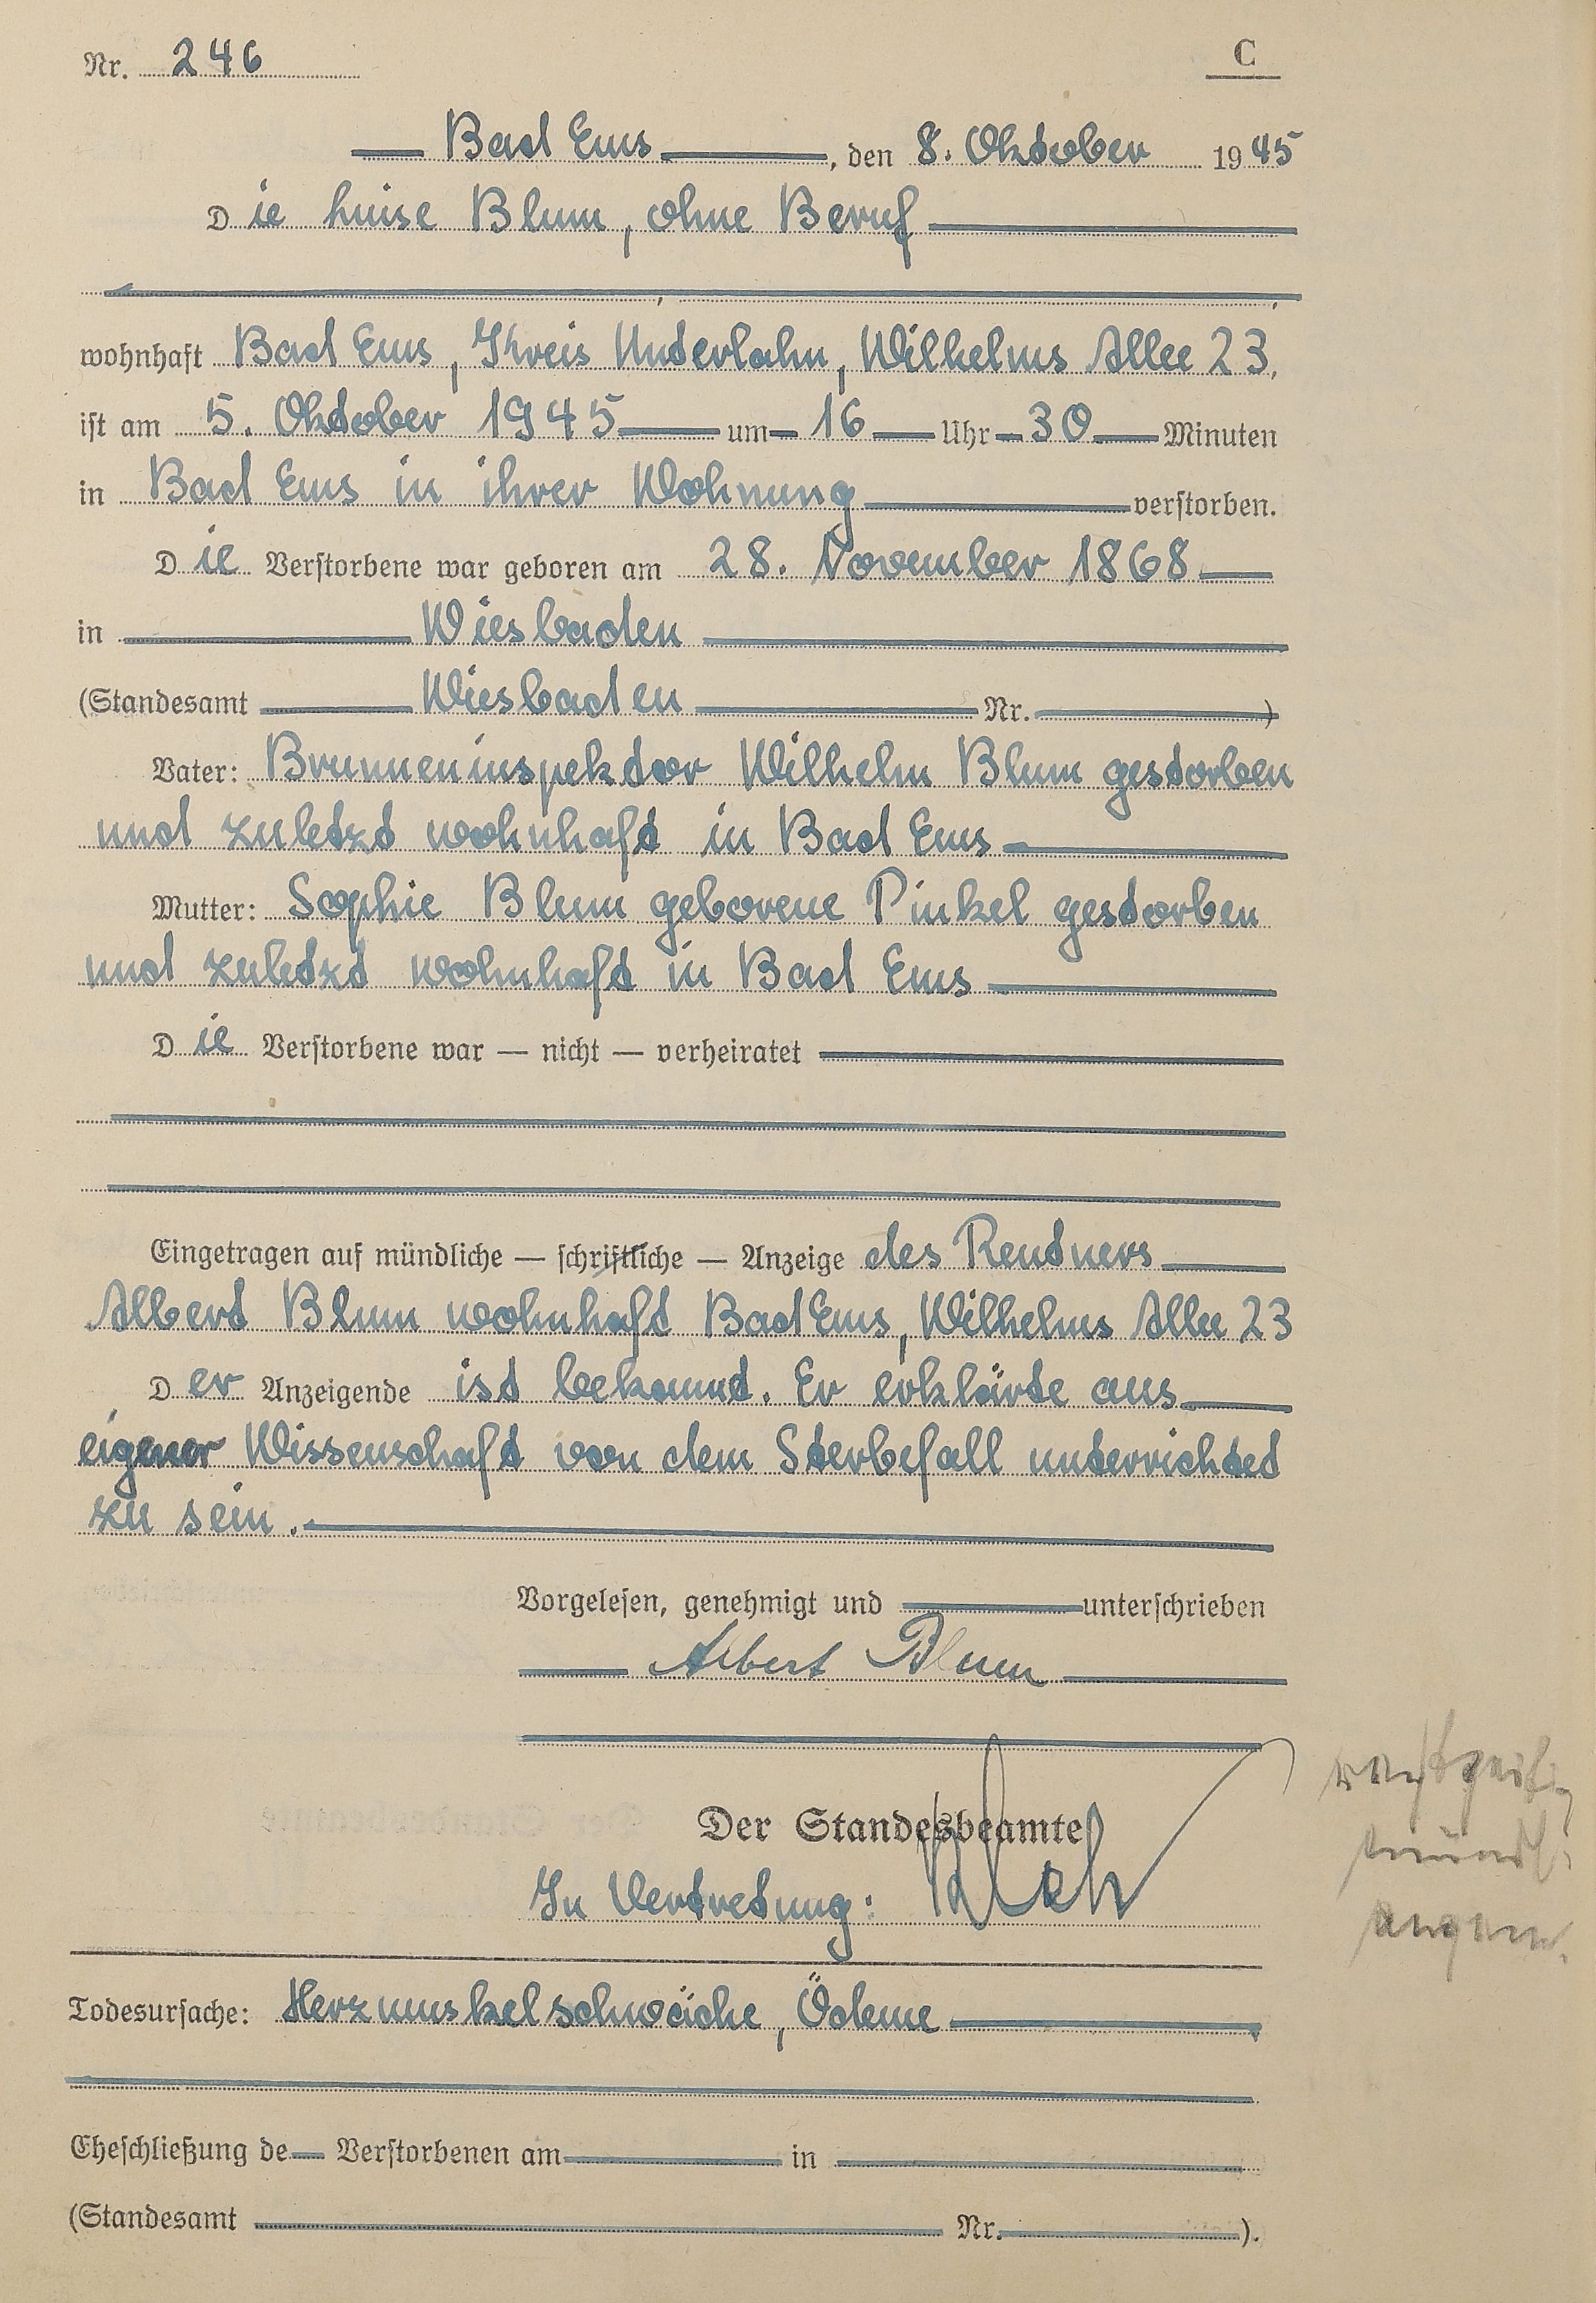 Nr. 246
C
Bad Ems, den 8. Oktober 1945
Die Luise Blum, ohne Beruf
wohnhaft Bad Ems, Kreis Unterlahn, Wilhelms Allee 23,
ist am 5. Oktober 1945 um 16 Uhr 30 Minuten
in Bad Ems in ihrer Wohnung verstorben.
Die Verstorbene war geboren am 28. November 1868
in Wiesbaden
(Standesamt Wiesbaden Nr. )
Vater: Brunneninspektor Wilhelm Blum gestorben
und zuletzt wohnhaft in Bad Ems
Mutter: Sophie Blum geborene Pinkel gestorben
und zuletzt wohnhaft in Bad Ems
Die Verstorbene war — nicht — verheiratet
Eingetragen auf mündliche — schriftliche — Anzeige des Rentners
Albert Blum wohnhaft Bad Ems, Wilhelms Allee 23
Der Anzeigende ist bekannt. Er erklärte aus
eigener Wissenschaft von dem Sterbefall unterrichtet
zu sein.
Vorgelesen, genehmigt und unterschrieben
Albert Blum
Der Standesbeamte
In Vertretung:
Todesursache: Herzmuskelschwäche, Ödeme
Eheschließung de Verstorbenen am in
(Standesamt Nr. ).